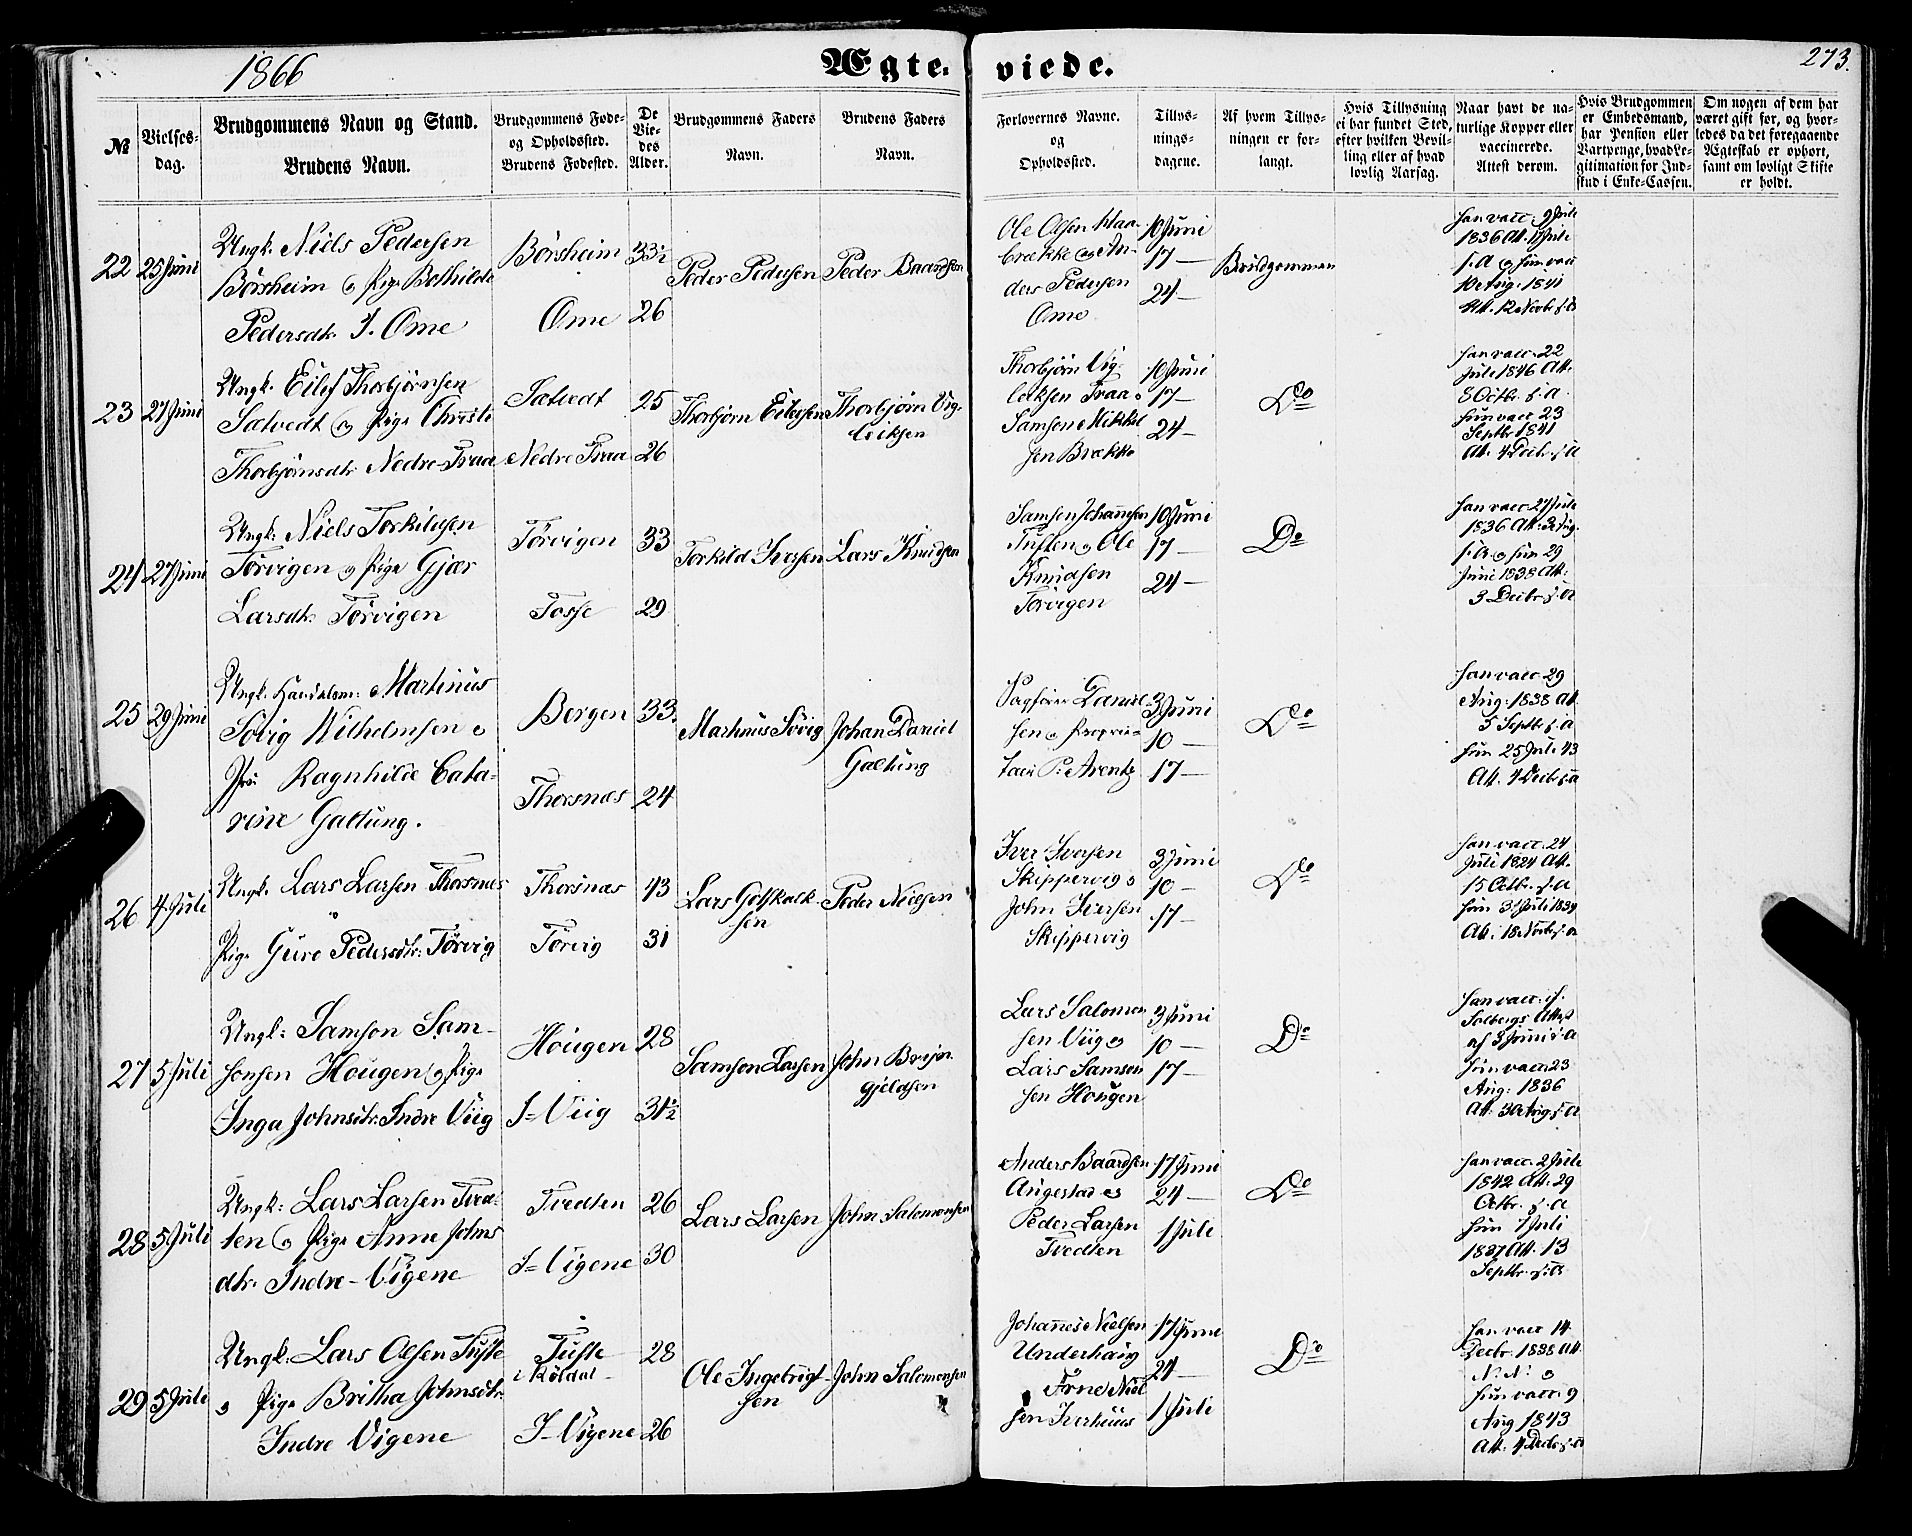 1866
Ægte-
viede.
273.
№
Vielses-
dag.
Brudgommens Navn og Stand.
Brudens Navn.
Brudgommens Føde-
og Opholdssted.
Brudens Fødested.
De
Vie-
des
Alder.
Brudgommens Faders
Navn.
Brudens Faders
Navn.
Forlovernes Navne.
og
Opholdssted.
Tillys-
nings-
dagene.
Af hvem Tillys-
ningen er for-
langt.
Hvis Tillysning
ei har fundet Sted,
efter hvilken Bevil-
ling eller af hvad
lovlig Aarsag.
Naar havt de na-
turlige Kopper eller
vaccinerede.
Attest derom.
Hvis Brudgommen
er Embedsmand,
har Pension eller
Vartpenge, hvad Le-
gitimation for Ind-
skud i Enke-Cassen.
Om nogen af dem har
været gift før, og hvor-
ledes da det foregaaende
Ægteskab er ophørt,
samt om lovligt Skifte
er holdt.
22
25 Juni
Ungk. Niels Pedersen
Børsheim og Pige Bothilde
Pedersdtr. I. Ome
Børsheim
Ome
33½
26
Peder Pedersen
Peder Baardsen
Ole Olsen Haa-
brække og An-
ders Pedersen
Ome
10 Juni
17 —
24 —
Brudgommen
han vacc. 9 Juli
1836 Att. 11 Juli
s. A og hun vacc
10 Aug. 1841
Att. 12 Novbr s. A
23
27 Juni
Ungk. Eilef Thorbjørnsen
Sætvedt og Pige Christi
Thorbjørnsdtr. Nedre-Traa
Sætvedt
Nedre Traa
25
26
Thorbjørn Eilefsen
Thorbjørn Vig-
leiksen
Thorbjørn Vig-
leiksen Traa og
Samson Mikkel
sen Brække
10 Juni
17 —
24 —
Do
han vacc. 22
Juli 1846 Att.
8 Octbr. s. A.
hun vacc 23
Septbr 1841
Att. 4 Decbr. s. A
24
27 Juni
Ungk. Niels Torkildsen
Tørvigen og Pige Gjær
Larsdtr. Tørvigen
Tørvigen
Tosse
33
29
Torkild Iversen
Lars Knudsen
Samson Johannesen
Tuften og Ole
Knudsen
Tørvigen
10 Juni
17 —
24 —
Do
han vacc 27 Juli
1836 Att. 3 Aug.
s. A. og hun 29
Juni 1838 Att:
3 Decbr. s. A
25
29 Juni
Ungk. Handelsm: Martinus
Søvig Wilhelmsen og
Pige Ragnhilde Catha-
rine Galtung.
Bergen
Thorsnæs
33.
24
Martinus Søvig
Johan Daniel
Galtung
Sagfører Daniel-
sen og Proprie-
tair P. Arentz
3 Juni
10 —
17 —
Do
han vacc 29
Aug. 1838 Att
5 Septbr. s. A
hun 25 Juli 43
Att. 4 Decbr s. A
26
4 Juli
Ungk. Lars Larsen Thorsnæs
Pige Guro Pedersdtr: Tørvig
Thorsnæs
Tørvig
43
31
Lars Gotskalk
sen
Peder Nielsen
Iver Iversen
Skippervig og
John Iversen
Skippervig
3 Juni
10 —
17 —
Do
han vacc. 24
Juli 1824 Att.
15 Octbr. s. A
hun 31 Juli 1834
Att. 18 Novbr s. A
27
5 Juli
Ungk: Samson Sam-
sonsen Hougen og Pige
Inga Johnsdtr. Indre Viig
Hougen
I- Viig
28
31½
Samson Larsen
John Bryn-
gjeldsen
Lars Salomon
sen Viig og
Lars Samson
sen Hougen
3 Juni
10 —
17 —
Do
han vacc. if.
Solbergs Attest
af 3 Juni s. A
hun vacc 23
Aug. 1836
Att. 30 Aug. s. A
28
5 Juli
Ungk: Lars Larsen Tved-
ten og Pige Anne Johns
dtr. Indre-Vigene
Tvedten
I- Vigene
26
30
Lars Larsen
John Salomonsen
Anders Baardsen
Augestad og
Peder Larsen
Tvedten
17 Juni
24 —
1 Juli
Do
han vacc. 2 Juli
1842 Att. 29
Octbr. s. A
hun 7 Juli
1837 Att. 13
Septbr. s. A
29
5 Juli
Ungk. Lars Olsen Tufte
og Pige Britha Johnsdtr.
Indre Vigene
Tufte
i Røldal
I- Vigene
28
26
Ole Ingebrigt
sen
John Salomonsen
Johannes Nielsen
Underhaug
og Arne Niel
sen Iverhuus
17 Juni
24 —
1 Juli
Do
han vacc 14
Decbr. 1838 Att
N. N. og
hun vacc. 9
Aug 1843
Att. 4 Decbr. s. A